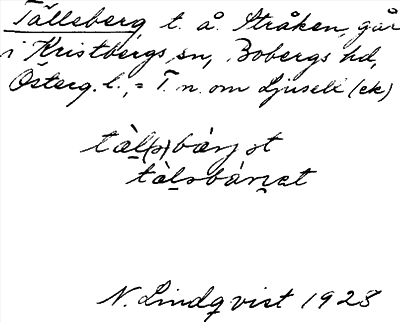 Tälleberg, t. å. Stråken, går
i Kristbergs sn, Bobergs hd,
Österg. l., = T. n. om Ljuseli (ek)
tæ̀l(ə)bærj ət
tàləbárjət
N. Lindqvist 1928